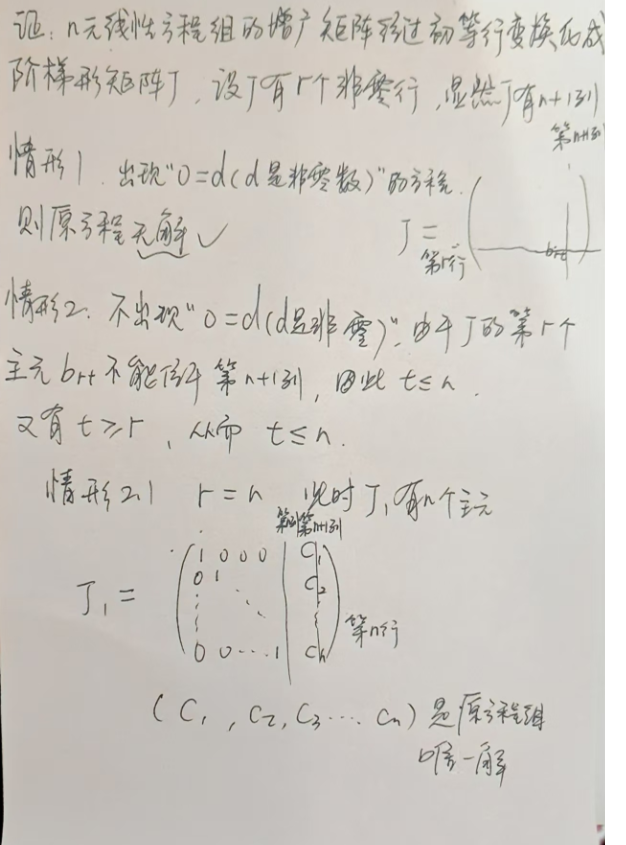 证: n元线性方程组的增广矩阵经过初等行变换化成
阶梯形矩阵J, 设J有r个非零行, 显然J有n+1列
情形1. 出现"0=d(d是非零数)"的方程.
则原方程无解√
第n+1列
J=
第r行
brt
情形2. 不出现"0=d(d是非零)", 由于J的第r个
主元brt不能位于第n+1列, 因此 t≤n.
又有 t≥r, 从而 t≤n.
情形2.1 r=n 此时J₁有n个主元
第n列 第n+1列
J₁=
1 0 0 0 C₁
0 1 C₂
0 0 ... 1 Cn
第n行
(C₁, C₂, C₃ ... Cn) 是原方程组
唯一解